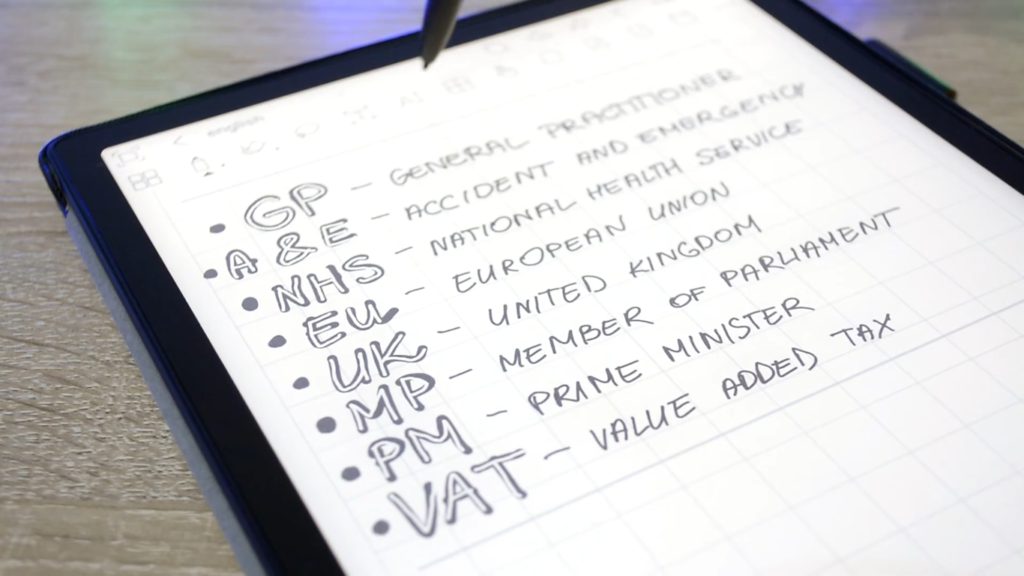 english
AI
• GP – GENERAL PRACTITIONER
• A & E – ACCIDENT AND EMERGENCY
• NHS – NATIONAL HEALTH SERVICE
• EU – EUROPEAN UNION
• UK – UNITED KINGDOM
• MP – MEMBER OF PARLIAMENT
• PM – PRIME MINISTER
• VAT – VALUE ADDED TAX